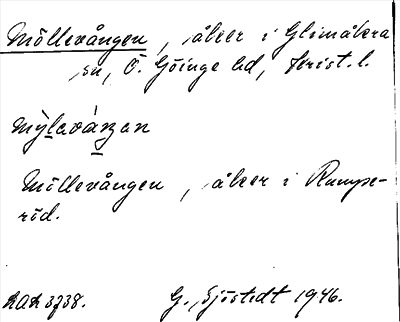 Möllevången, åker i Glimåkra
sn, Ö. Göinge hd, Krist. l.
mỳlavȧŋan
Möllevången, åker i Rumpe-
röd.
LAL 3738.
G. Sjöstedt 1946.